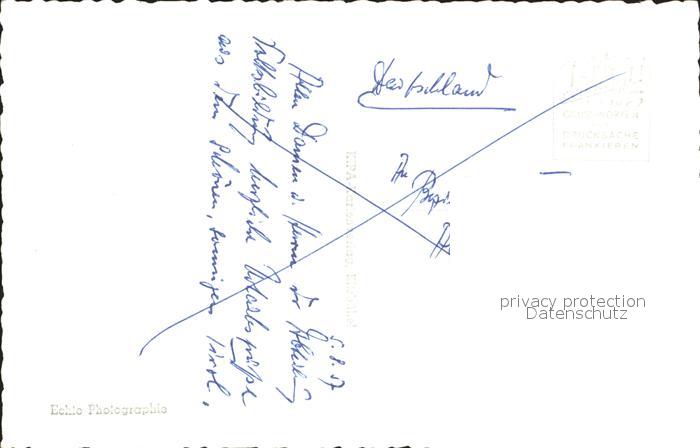 Deutschland
An
5.8.57
Allen Damen u. Herren der
Volksbildung herzliche Urlaubsgrüße
aus dem schönen, sonnigen Tirol.
DRUCKSACHE
FRANKIEREN
privacy protection
Datenschutz
Echte Photographie